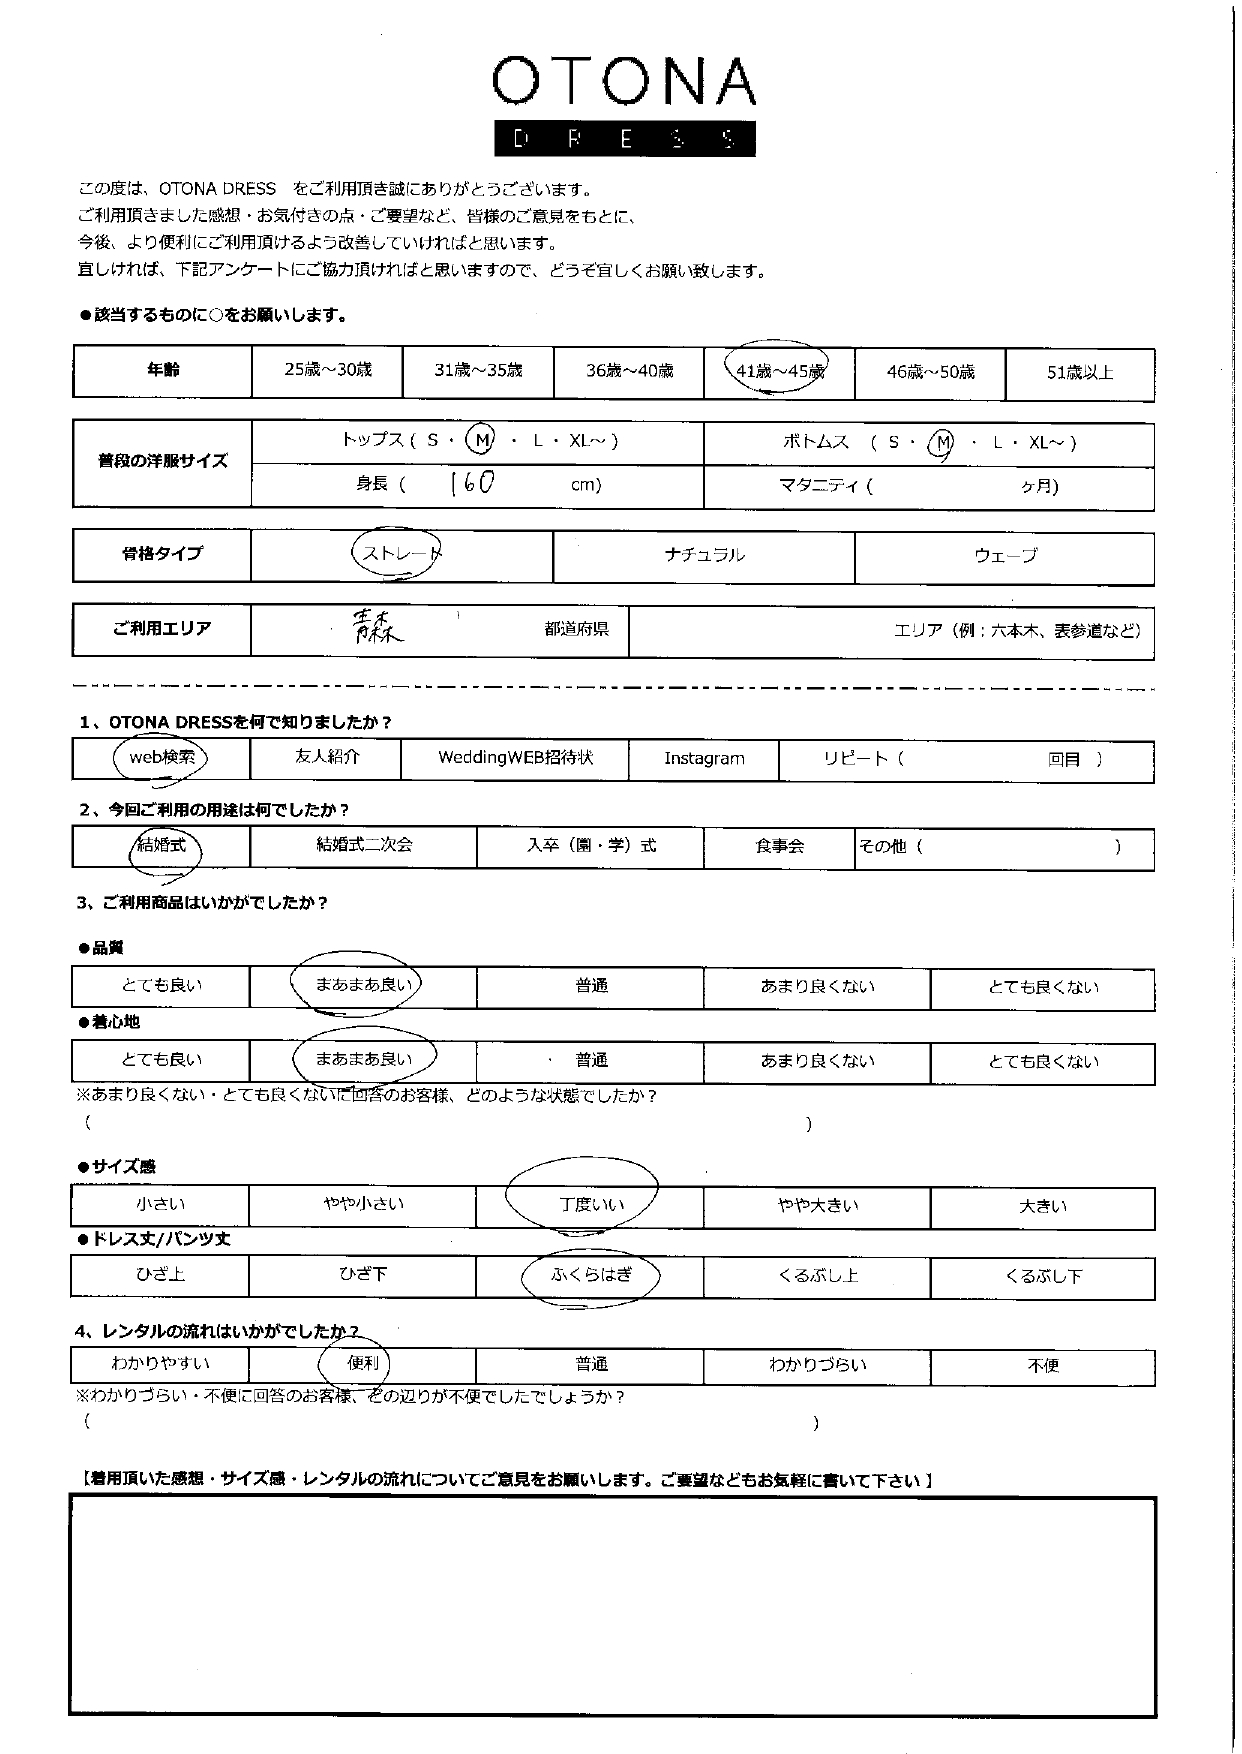 OTONA
DRESS
この度は、OTONA DRESS　をご利用頂き誠にありがとうございます。
ご利用頂きました感想・お気付きの点・ご要望など、皆様のご意見をもとに、
今後、より便利にご利用頂けるよう改善していければと思います。
宜しければ、下記アンケートにご協力頂ければと思いますので、どうぞ宜しくお願い致します。
●該当するものに○をお願いします。
年齢 25歳～30歳 31歳～35歳 36歳～40歳 41歳～45歳 46歳～50歳 51歳以上
普段の洋服サイズ トップス ( S ・ M ・ L ・ XL～ ) ボトムス ( S ・ M ・ L ・ XL～ )
身長 ( 160 cm) マタニティ ( ヶ月)
骨格タイプ ストレート ナチュラル ウェーブ
ご利用エリア 青森 都道府県 エリア（例：六本木、表参道など）
1、OTONA DRESSを何で知りましたか？
web検索 友人紹介 WeddingWEB招待状 Instagram リピート（ 回目 ）
2、今回ご利用の用途は何でしたか？
結婚式 結婚式二次会 入卒（園・学）式 食事会 その他（ ）
3、ご利用商品はいかがでしたか？
●品質
とても良い まあまあ良い 普通 あまり良くない とても良くない
●着心地
とても良い まあまあ良い 普通 あまり良くない とても良くない
※あまり良くない・とても良くないに回答のお客様、どのような状態でしたか？
( )
●サイズ感
小さい やや小さい 丁度いい やや大きい 大きい
●ドレス丈/パンツ丈
ひざ上 ひざ下 ふくらはぎ くるぶし上 くるぶし下
4、レンタルの流れはいかがでしたか？
わかりやすい 便利 普通 わかりづらい 不便
※わかりづらい・不便に回答のお客様、どの辺りが不便でしたでしょうか？
( )
【着用頂いた感想・サイズ感・レンタルの流れについてご意見をお願いします。ご要望などもお気軽に書いて下さい 】